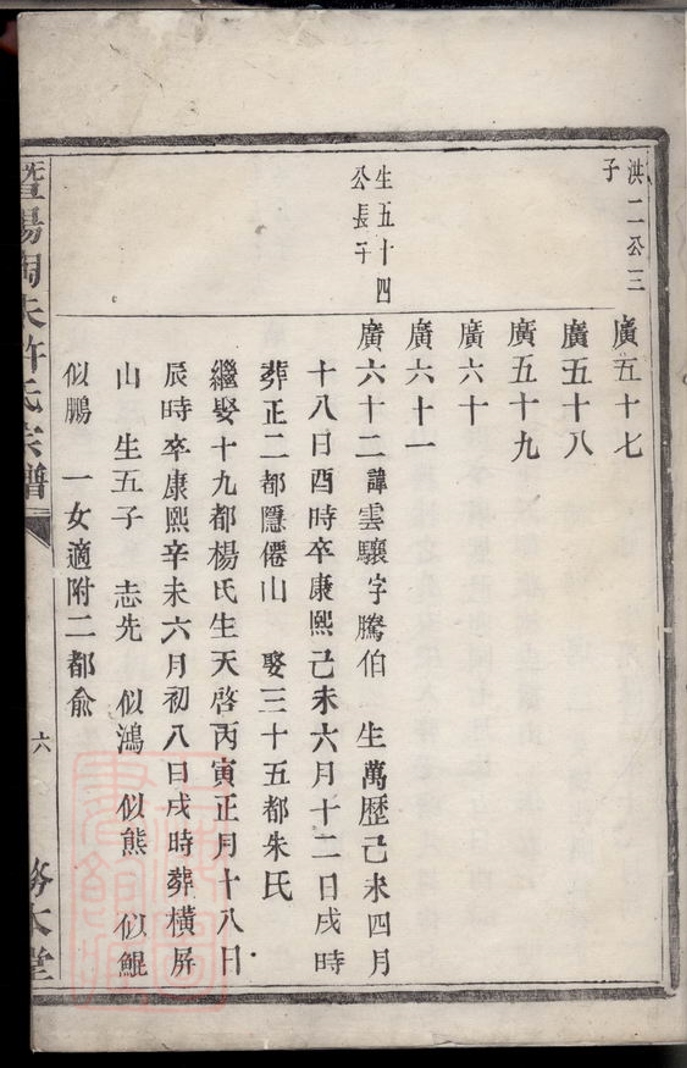 洪二公三
子
廣五十七
廣五十八
廣五十九
廣六十
廣六十一
生五十四
公長子
廣六十二 諱雲驤字騰伯 生萬歷己未四月
十八日酉時卒康熙己未六月十二日戌時
葬正二都隱僊山 娶三十五都朱氏
繼娶十九都楊氏生天啓丙寅正月十八日
辰時卒康熙辛未六月初八日戌時葬橫屏
山 生五子 志先 似鴻 似熊 似鯤
似鵬 一女適附二都俞
暨陽 許氏宗譜
六
務本堂